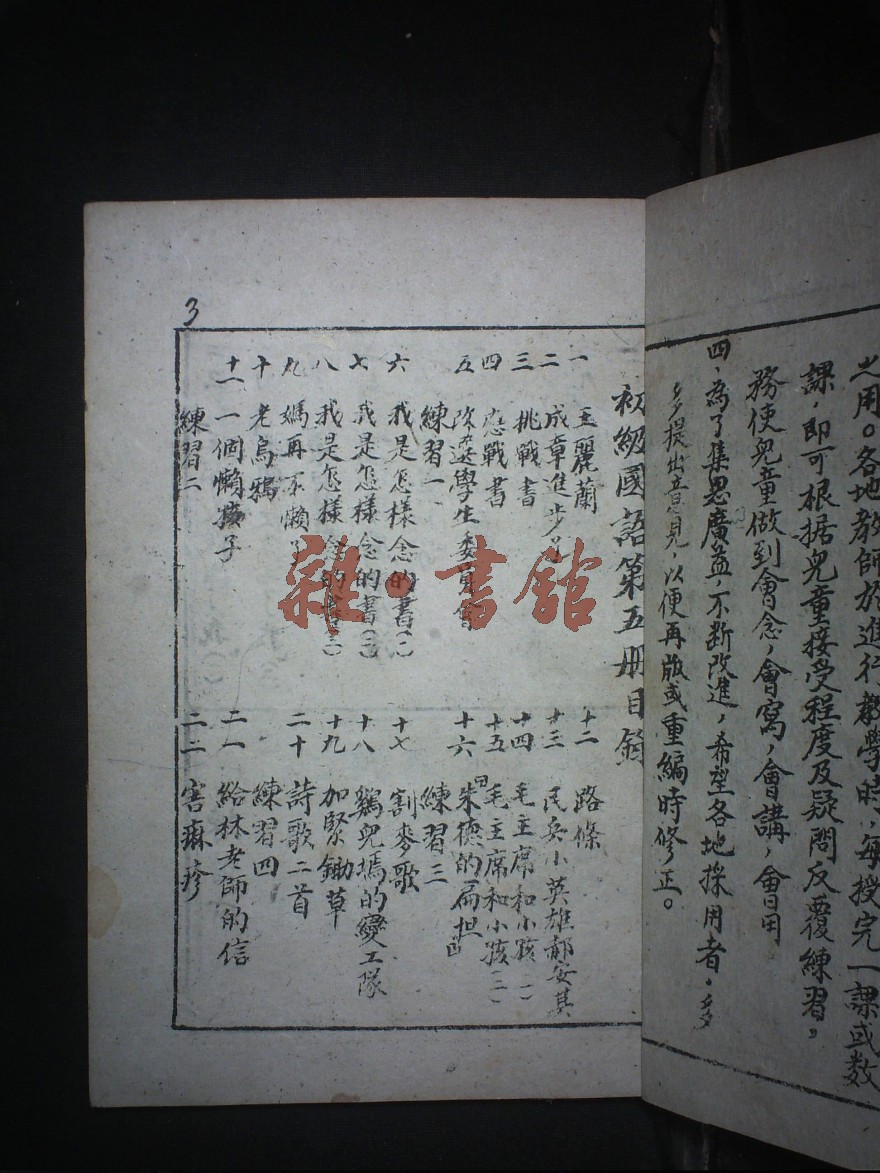 之用。各地教師於進行教學時，每授完一課或数
課，即可根据兒童接受程度及疑問反覆練習，
務使兒童做到會念，會寫，會講，會用
四、為了集思廣益，不断改進，希望各地採用者，多
多提出意見，以便再版或重編時修正。
3
初級國語第五册目錄
一 王麗蘭
二 成章進步了
三 挑戰書
四 應戰書
五 改選學生委員會
練習一
六 我是怎樣念的書(一)
七 我是怎樣念的書(二)
八 我是怎樣念的書(三)
九 媽再不懶了
十 老烏鴉
十一 一個懶孩子
練習二
十二 路條
十三 民兵小英雄郝安其
十四 毛主席和小孩(一)
十五 毛主席和小孩(二)
十六 朱德的扁担
練習三
十七 割麥歌
十八 鷄兒塆的變工隊
十九 加緊鋤草
二十 詩歌二首
練習四
二一 給林老師的信
二二 害痳疹
雜·書舘